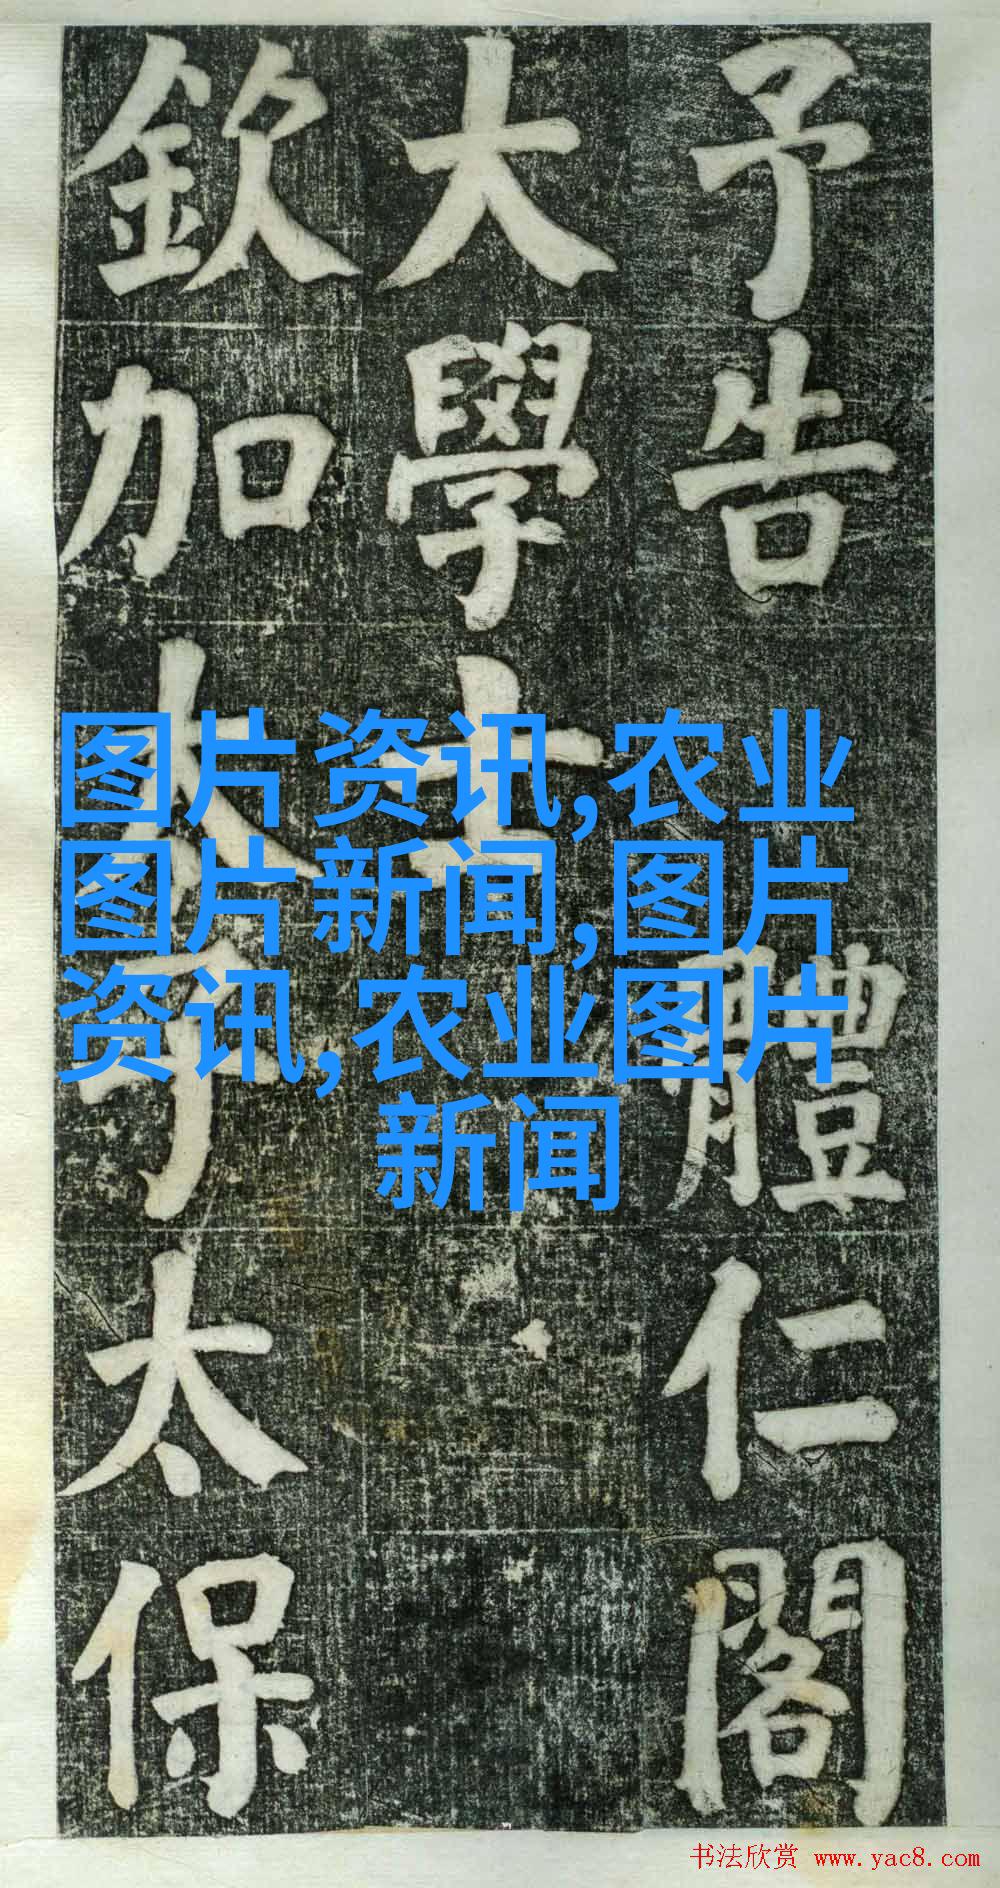 予告體仁閣
大學士
欽加太子太保
图片资讯,农业
图片新闻,图片
资讯,农业图片
新闻
书法欣赏 www.yac8.com